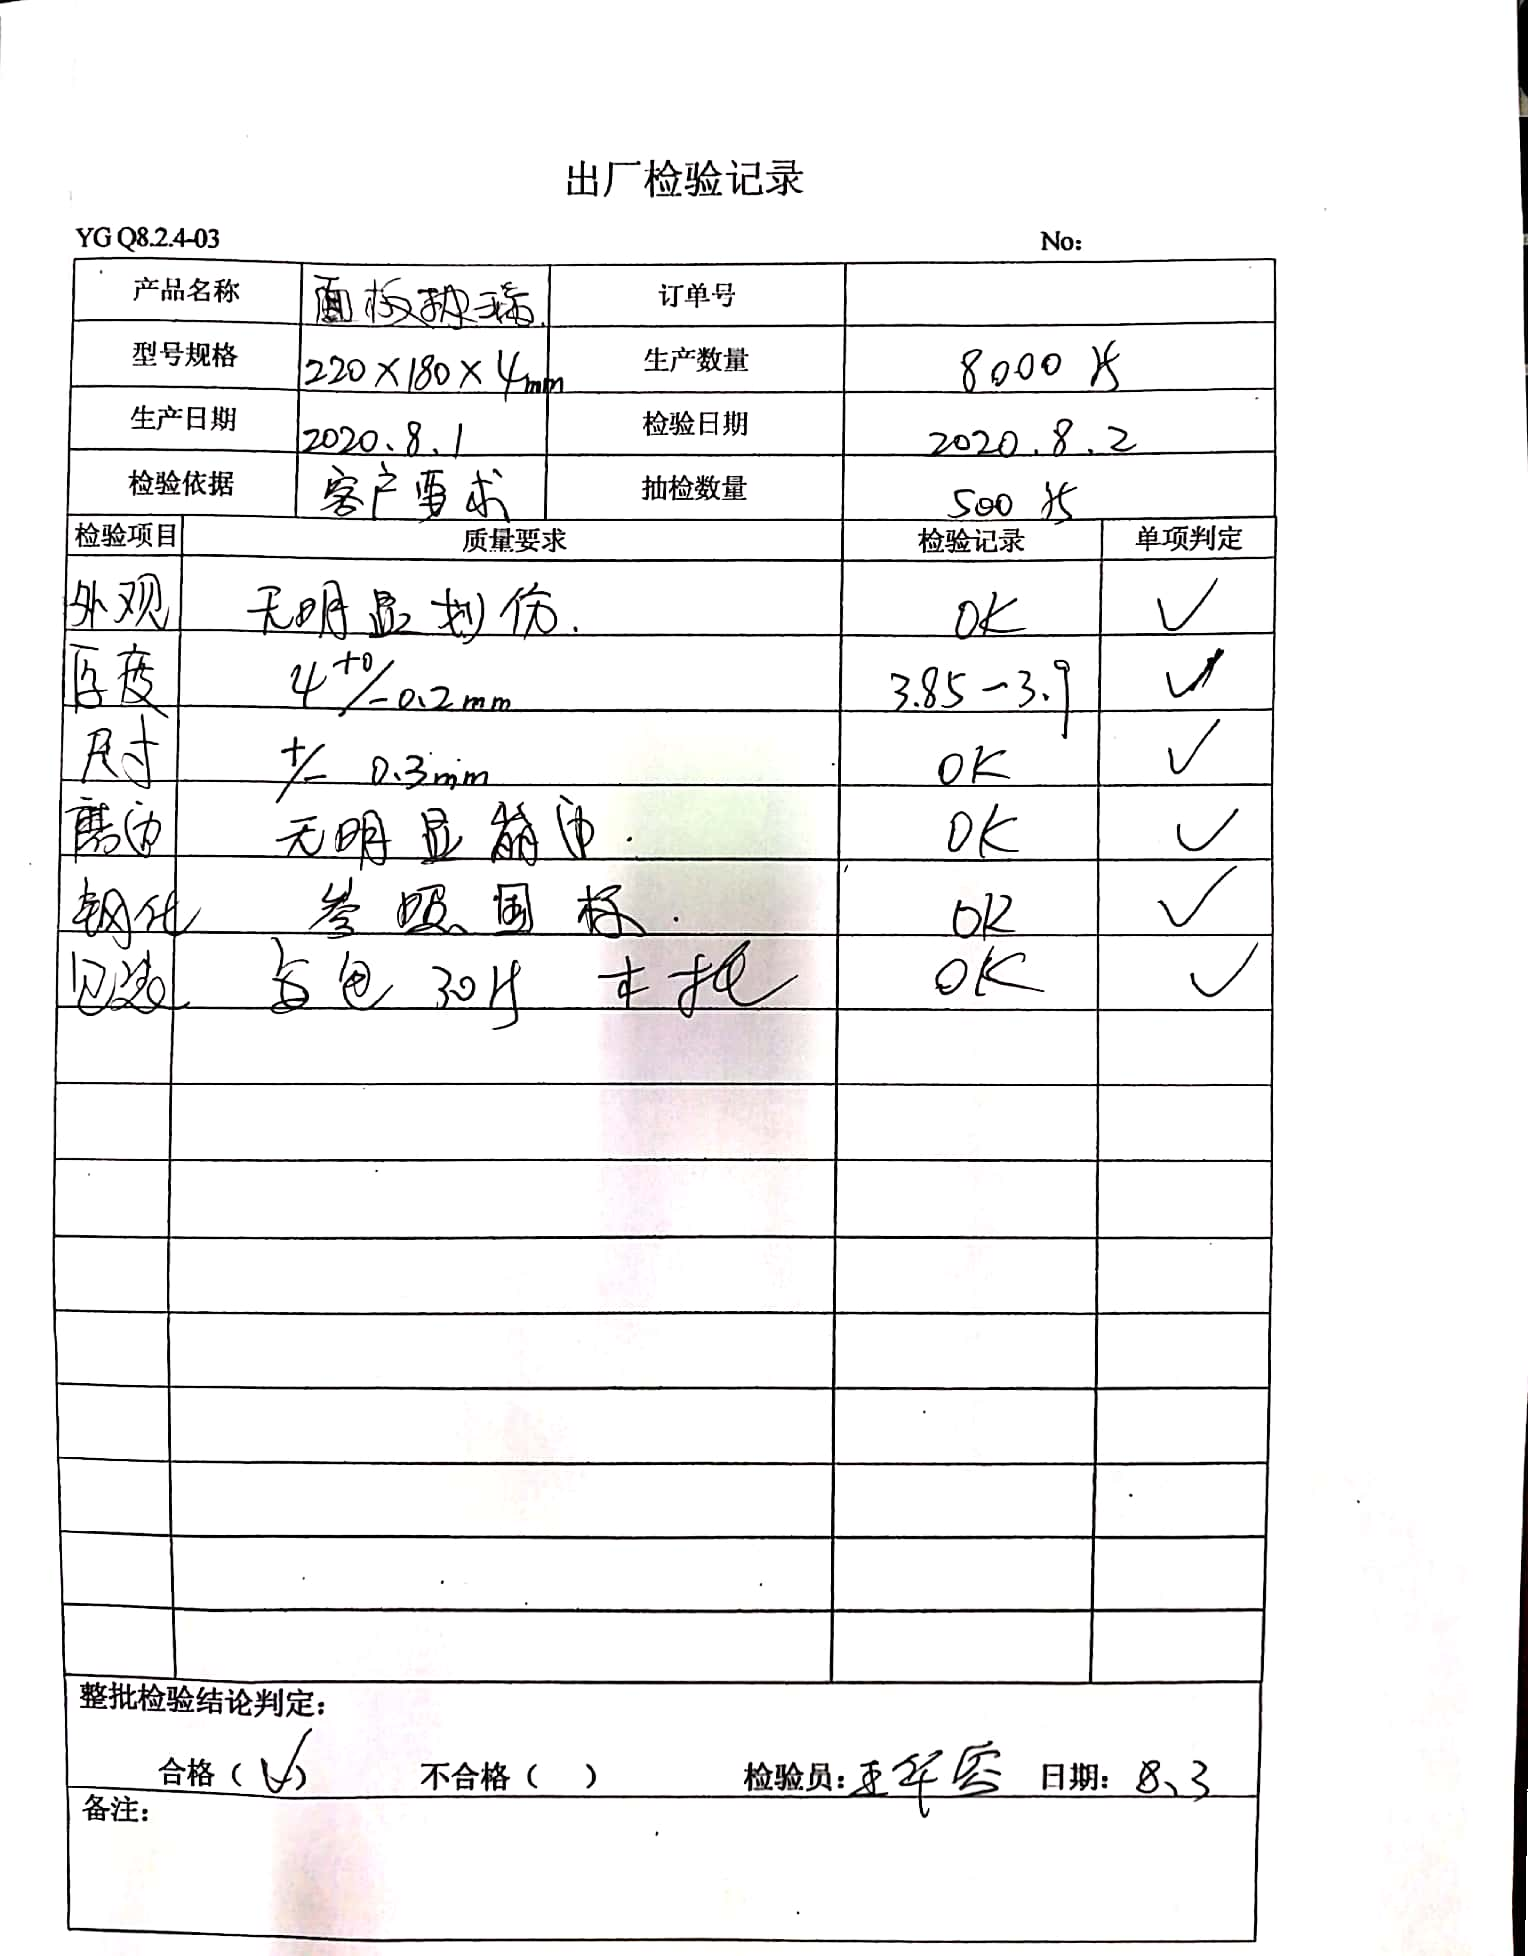 出厂检验记录
YG Q8.2.4-03 No:
产品名称 面板玻璃. 订单号
型号规格 220×180×4mm 生产数量 8000片
生产日期 2020.8.1 检验日期 2020.8.2
检验依据 客户要求 抽检数量 500片
检验项目 质量要求 检验记录 单项判定
外观 无明显划伤. OK ✓
厚度 4+0/-0.2mm 3.85-3.9 ✓
尺寸 +/- 0.3mm OK ✓
磨边 无明显崩边. OK ✓
钢化 参照国标. OK ✓
包装 每包30片 木托 OK ✓
整批检验结论判定:
合格(✓) 不合格( ) 检验员:王华容 日期: 8.3
备注: